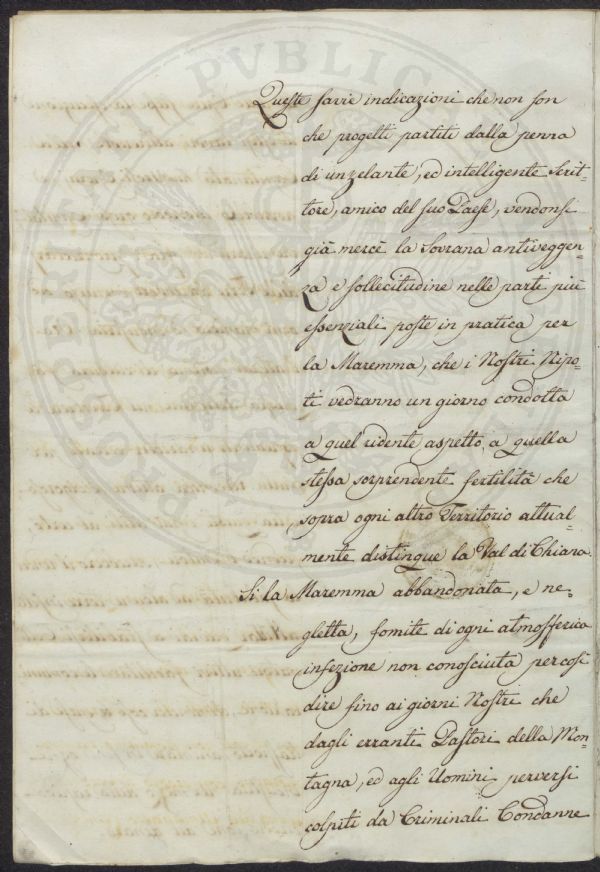 Queste savie indicazioni che non son
che progetti partiti dalla penna
di un zelante, ed intelligente Scrit-
tore, amico del suo Paese, vendonsi
già mercè la Sovrana antiveggen-
za e sollecitudine nelle parti più
essenziali poste in pratica per
la Maremma, che i Nostri Nipo-
ti vedranno un giorno condotta
a quel ridente aspetto, a quella
stessa sorprendente fertilità che
sopra ogni altro Territorio attual-
mente distingue la Val di Chiana.
Si la Maremma abbandonata, e ne-
gletta, fomite di ogni atmosferica
infezione non conosciuta per così
dire fino ai giorni Nostri che
dagli erranti Pastori della Mon-
tagna, ed agli Uomini perversi
colpiti da Criminali Condanne